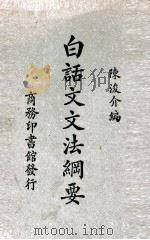 陳浚介編
白話文文法綱要
商務印書館發行